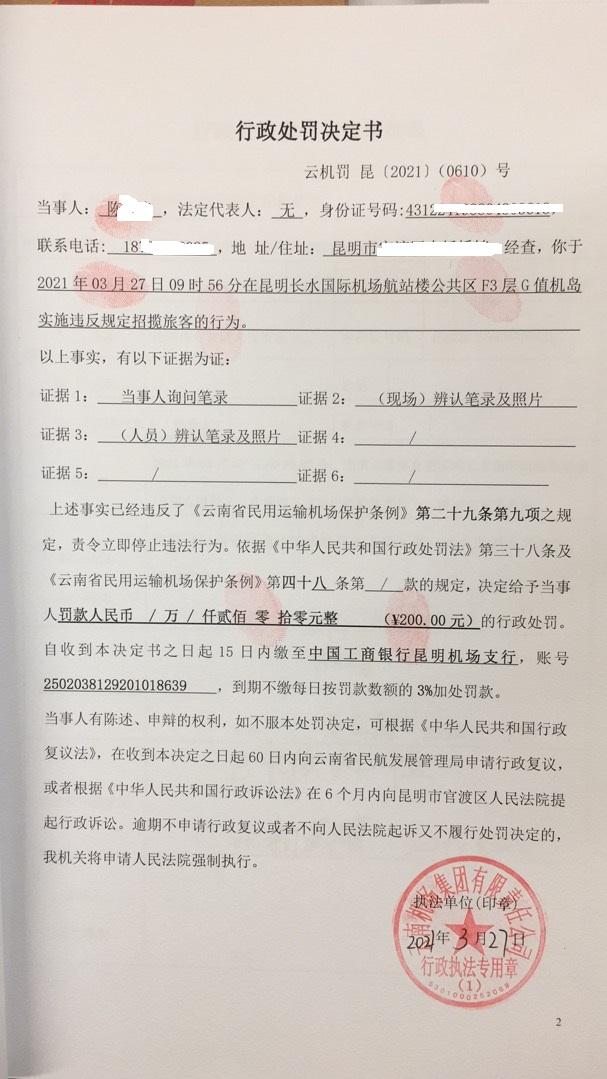 行政处罚决定书
云机罚 昆〔2021〕（0610）号
当事人：陈，法定代表人：无，身份证号码:
联系电话：18，地 址/住址：昆明市 经查，你于
2021 年 03 月 27 日 09 时 56 分在昆明长水国际机场航站楼公共区 F3 层 G 值机岛
实施违反规定招揽旅客的行为。
以上事实，有以下证据为证：
证据 1： 当事人询问笔录 证据 2： （现场）辨认笔录及照片
证据 3： （人员）辨认笔录及照片 证据 4： /
证据 5： / 证据 6： /
上述事实已经违反了《云南省民用运输机场保护条例》第二十九条第九项之规
定，责令立即停止违法行为。依据《中华人民共和国行政处罚法》第三十八条及
《云南省民用运输机场保护条例》第四十八 条第 / 款的规定，决定给予当事
人罚款人民币 / 万 / 仟贰佰 零 拾零元整 （¥200.00 元）的行政处罚。
自收到本决定书之日起 15 日内缴至中国工商银行昆明机场支行，账号
2502038129201018639 ，到期不缴每日按罚款数额的 3%加处罚款。
当事人有陈述、申辩的权利，如不服本处罚决定，可根据《中华人民共和国行政
复议法》，在收到本决定之日起 60 日内向云南省民航发展管理局申请行政复议，
或者根据《中华人民共和国行政诉讼法》在 6 个月内向昆明市官渡区人民法院提
起行政诉讼。逾期不申请行政复议或者不向人民法院起诉又不履行处罚决定的，
我机关将申请人民法院强制执行。
云南机场集团有限责任公司
执法单位(印章)
2021年 3 月 27 日
行政执法专用章
(1)
2